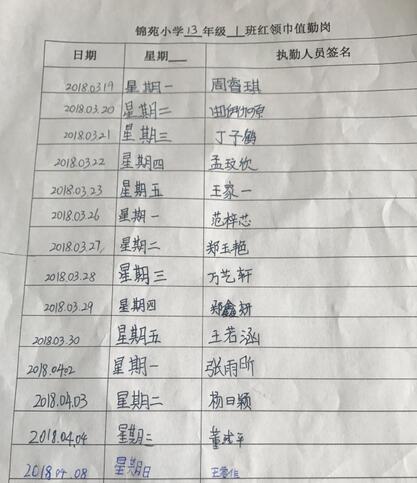 锦苑小学 13 年级 1 班红领巾值勤岗
日期 星期 执勤人员签名
2018.03.19 星期一 周睿琪
2018.03.20 星期二
2018.03.21 星期三 丁子鹤
2018.03.22 星期四 孟玟欣
2018.03.23 星期五 王家一
2018.03.26 星期一 范梓芯
2018.03.27 星期二 郑玉艳
2018.03.28 星期三 万艺轩
2018.03.29 星期四 郑鑫妍
2018.03.30 星期五 王若涵
2018.04.02 星期一 张雨昕
2018.04.03 星期二 杨日颖
2018.04.04 星期三
2018.04.08 星期日